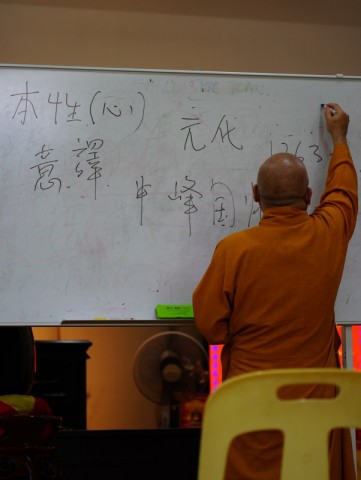 本性(心)
元代 1263
意譯
中峰国